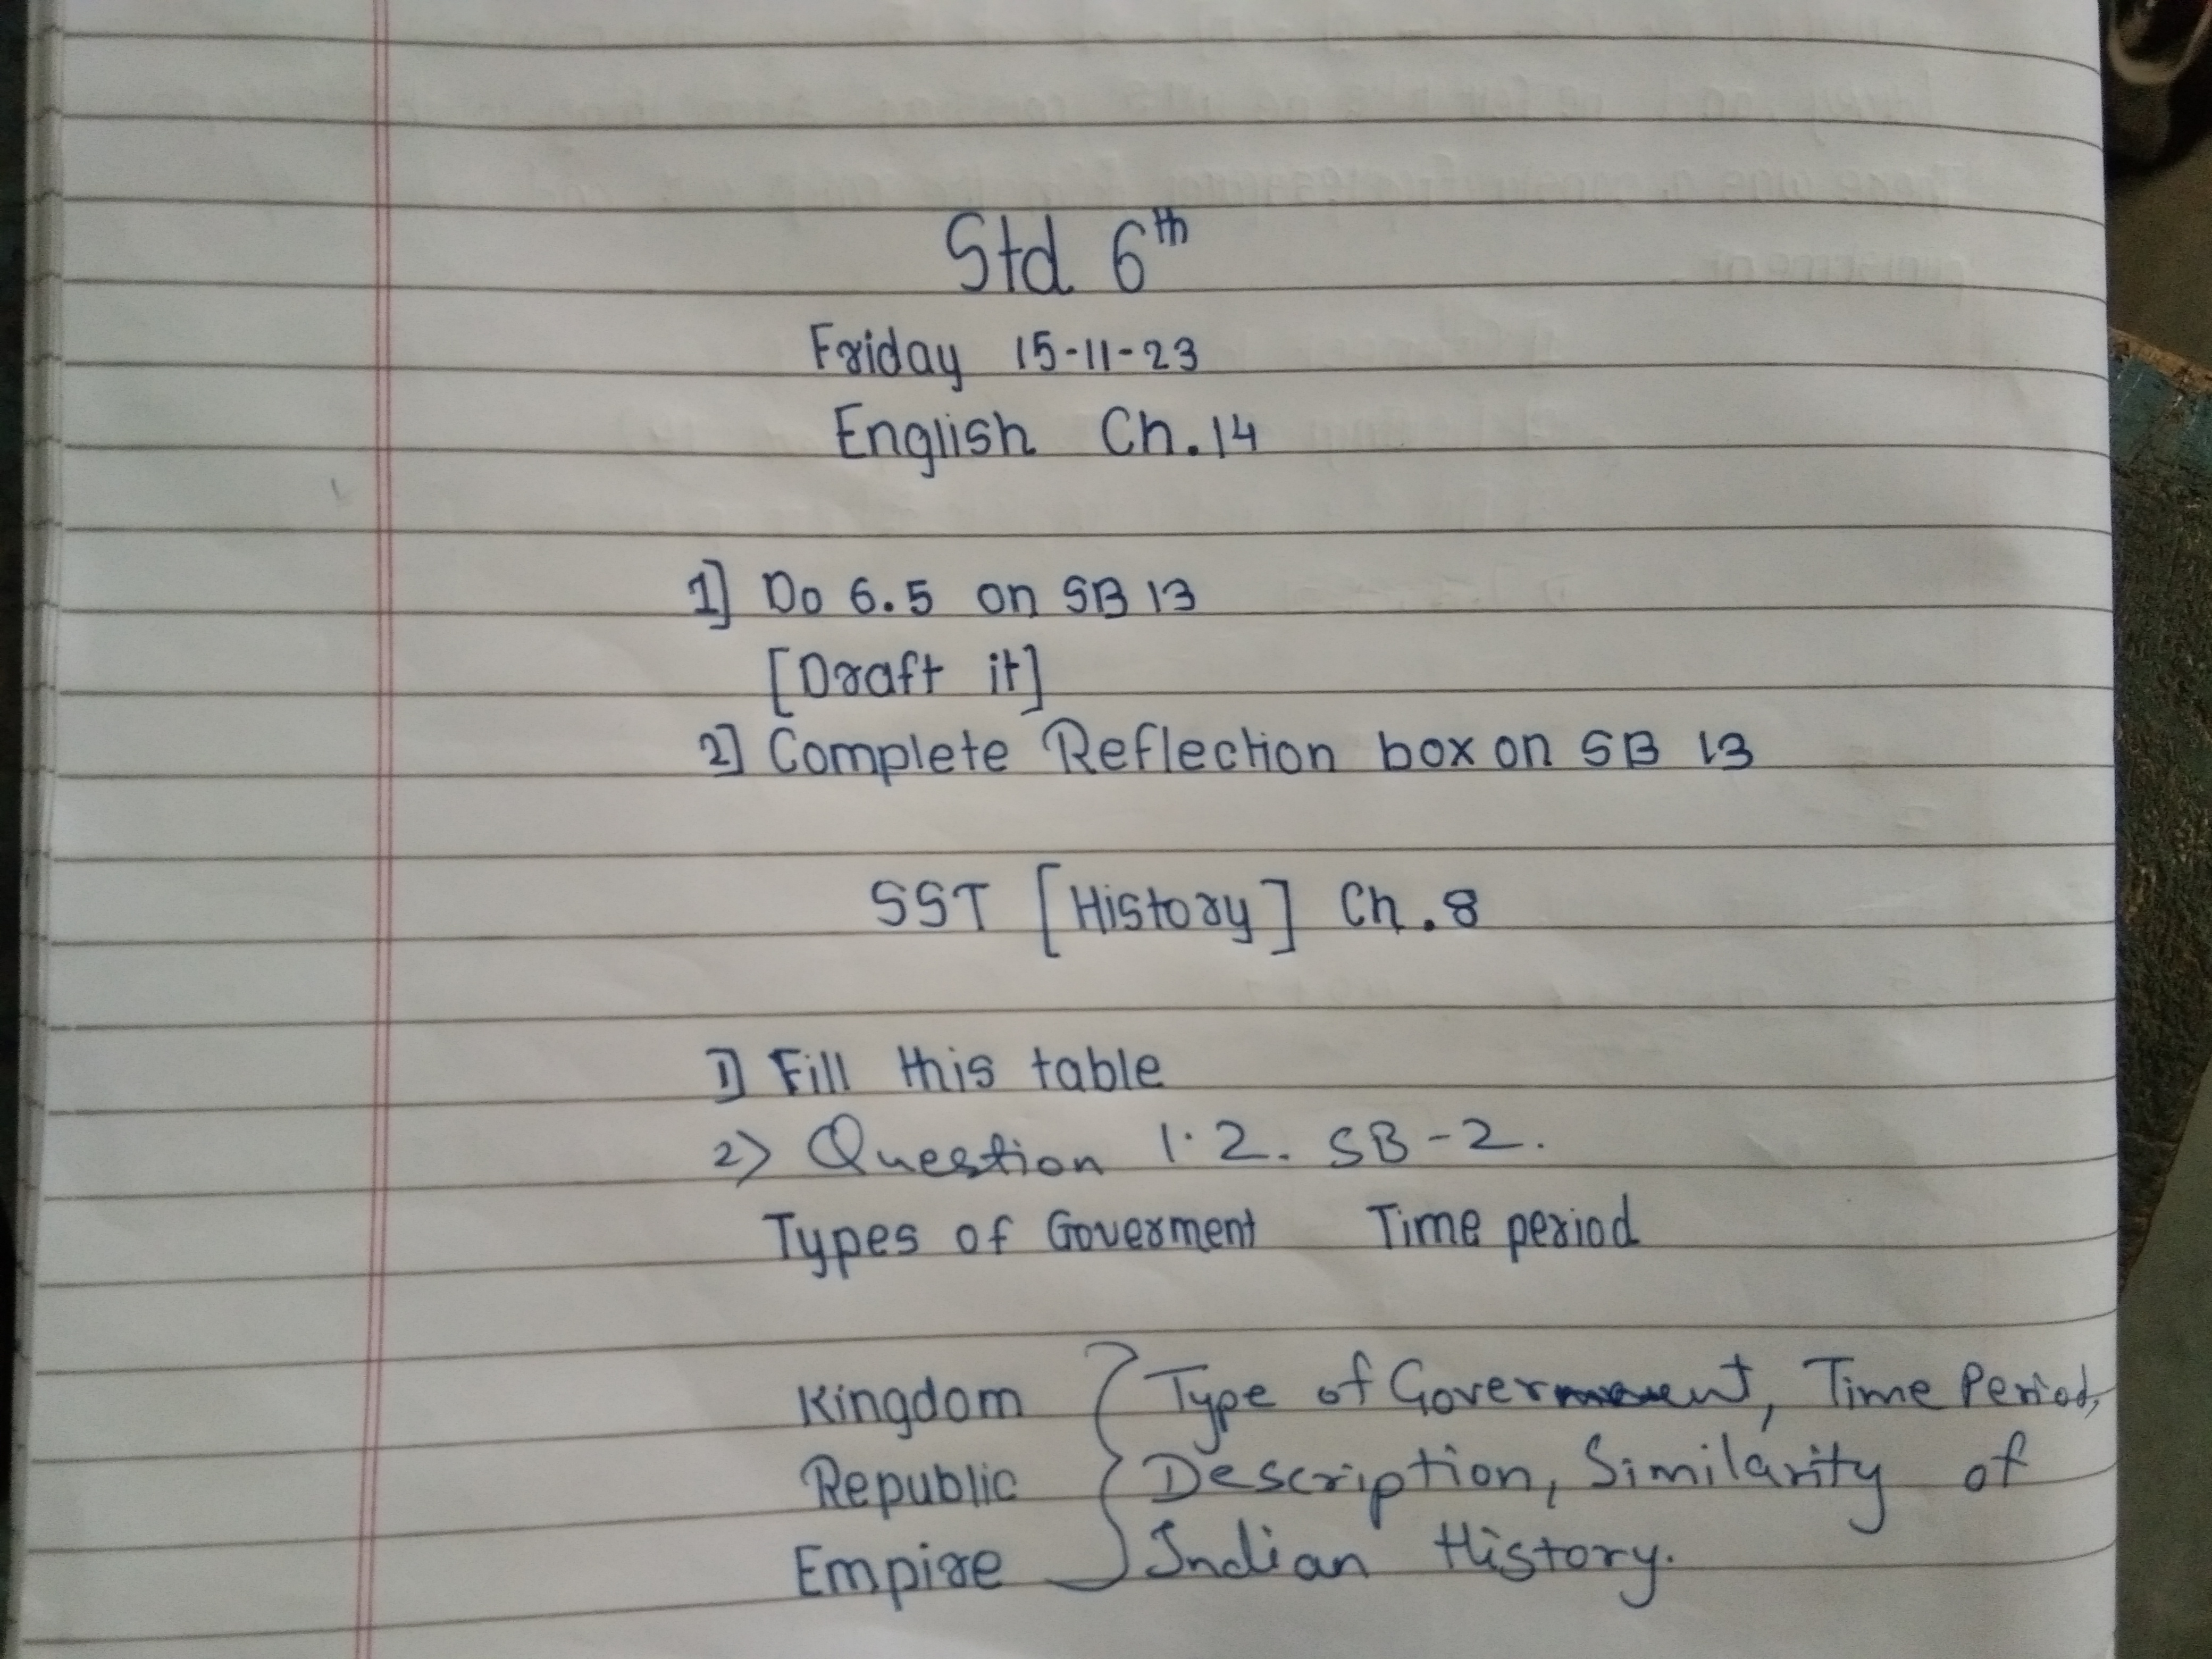 Std 6th
Friday 15-11-23
English Ch.14
1] Do 6.5 on SB 13
[Draft it]
2] Complete Reflection box on SB 13
SST [History] Ch.8
1] Fill this table
2> Question 1.2. SB-2.
Types of Goverment Time period
Kingdom Type of Government, Time Period,
Republic Description, Similarity of
Empire Indian History.